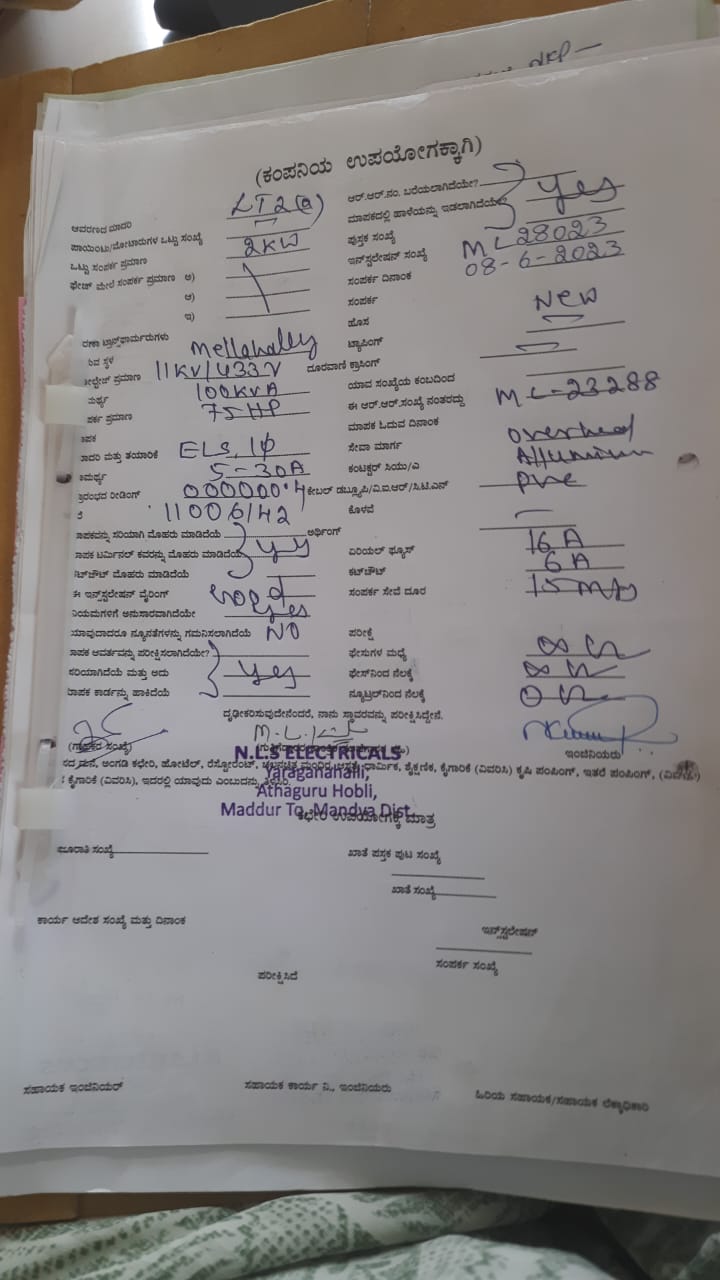 NKP —
(ಕಂಪನಿಯ ಉಪಯೋಗಕ್ಕಾಗಿ)
ಆವರಣದ ಮಾದರಿ LT2(a)
ಪಾಯಿಂಟು/ಮೋಟಾರುಗಳ ಒಟ್ಟು ಸಂಖ್ಯೆ
ಒಟ್ಟು ಸಂಪರ್ಕ ಪ್ರಮಾಣ 2KW
ಫೇಜ್ ಮೇಲೆ ಸಂಪರ್ಕ ಪ್ರಮಾಣ ಅ)
ಆ)
ಇ)
ರಣಾ ಟ್ರಾನ್ಸ್‌ಫಾರ್ಮರುಗಳು
ಸ್ಥಳ Mellahalley
ಪ್ರಮಾಣ 11KV/433V
100KVA
ಪರ್ಕ ಪ್ರಮಾಣ 75HP
ಾಪಕ
ಾದರಿ ಮತ್ತು ತಯಾರಿಕೆ ELS, 1φ
ಾಮರ್ಥ್ಯ 5-30A
ಾರಂಭದ ರೀಡಿಂಗ್ 000000.4
11006142
ಾಪಕವನ್ನು ಸರಿಯಾಗಿ ಮೊಹರು ಮಾಡಿದೆಯೆ
ಾಪಕ ಟರ್ಮಿನಲ್ ಕವರನ್ನು ಮೊಹರು ಮಾಡಿದೆಯೆ
ಕಟ್‌ಔಟ್ ಮೊಹರು ಮಾಡಿದೆಯೆ
ಈ ಇನ್‌ಸ್ಟಲೇಷನ್ ವೈರಿಂಗ್ good
ನಿಯಮಗಳಿಗೆ ಅನುಸಾರವಾಗಿದೆಯೇ yes
ಯಾವುದಾದರೂ ನ್ಯೂನತೆಗಳನ್ನು ಗಮನಿಸಲಾಗಿದೆಯೆ NO
ಾಪಕ ಆವರ್ತವನ್ನು ಪರೀಕ್ಷಿಸಲಾಗಿದೆಯೇ?
ಸರಿಯಾಗಿದೆಯೆ ಮತ್ತು ಅದು yes
ಮಾಪಕ ಕಾರ್ಡನ್ನು ಹಾಕಿದೆಯೆ
ಆರ್.ಆರ್.ನಂ. ಬರೆಯಲಾಗಿದೆಯೇ?
ಮಾಪಕದಲ್ಲಿ ಹಾಳೆಯನ್ನು ಇಡಲಾಗಿದೆಯೆ yes
ಪುಸ್ತಕ ಸಂಖ್ಯೆ
ಇನ್‌ಸ್ಟಲೇಷನ್ ಸಂಖ್ಯೆ ML28023
ಸಂಪರ್ಕ ದಿನಾಂಕ 08-6-2023
ಸಂಪರ್ಕ
ಹೊಸ New
ಟ್ಯಾಪಿಂಗ್
ದೂರವಾಣಿ ಕ್ರಾಸಿಂಗ್
ಯಾವ ಸಂಖ್ಯೆಯ ಕಂಬದಿಂದ
ಈ ಆರ್.ಆರ್.ಸಂಖ್ಯೆ ನಂತರದ್ದು ML-23288
ಮಾಪಕ ಓದುವ ದಿನಾಂಕ
ಸೇವಾ ಮಾರ್ಗ overhead
ಕಂಟಕ್ಟರ್ ಸಿಯು/ಎ Alluminium
ಕೇಬಲ್ ಡಬ್ಲ್ಯೂಪಿ/ವಿ.ಐ.ಆರ್/ಸಿ.ಟಿ.ಎಸ್ pvc
ಕೊಳವೆ
ಅರ್ಥಿಂಗ್
ಏರಿಯಲ್ ಫ್ಯೂಸ್ 16A
ಕಟ್‌ಔಟ್ 6A
ಸಂಪರ್ಕ ಸೇವೆ ದೂರ 15 mts
ಪರೀಕ್ಷೆ
ಫೇಸುಗಳ ಮಧ್ಯೆ ∞ Ω
ಫೇಸ್‌ನಿಂದ ನೆಲಕ್ಕೆ ∞ Ω
ನ್ಯೂಟ್ರಲ್‌ನಿಂದ ನೆಲಕ್ಕೆ 0 Ω
ದೃಢೀಕರಿಸುವುದೇನೆಂದರೆ, ನಾನು ಸ್ಥಾವರವನ್ನು ಪರೀಕ್ಷಿಸಿದ್ದೇನೆ.
(ಗ್ರಾಹಕರ ಸಂಖ್ಯೆ)
ಇಂಜಿನಿಯರು
N.L.S ELECTRICALS
Yaraganahalli,
Athaguru Hobli,
Maddur Tq, Mandya Dist.
ಮನೆ, ಅಂಗಡಿ ಕಛೇರಿ, ಹೋಟೆಲ್, ರೆಸ್ಟೋರೆಂಟ್, ಚಲನಚಿತ್ರ ಮಂದಿರ, ಆಸ್ಪತ್ರೆ, ಧಾರ್ಮಿಕ, ಶೈಕ್ಷಣಿಕ, ಕೈಗಾರಿಕೆ (ವಿವರಿಸಿ) ಕೃಷಿ ಪಂಪಿಂಗ್, ಇತರೆ ಪಂಪಿಂಗ್, (ವಿವರಿಸಿ)
ಕೈಗಾರಿಕೆ (ವಿವರಿಸಿ), ಇದರಲ್ಲಿ ಯಾವುದು ಎಂಬುದನ್ನು ತಿಳಿಸಿರಿ.
ಕಛೇರಿ ಉಪಯೋಗಕ್ಕೆ ಮಾತ್ರ
ಜೂರಾತಿ ಸಂಖ್ಯೆ
ಖಾತೆ ಪುಸ್ತಕ ಪುಟ ಸಂಖ್ಯೆ
ಖಾತೆ ಸಂಖ್ಯೆ
ಕಾರ್ಯ ಆದೇಶ ಸಂಖ್ಯೆ ಮತ್ತು ದಿನಾಂಕ
ಇನ್‌ಸ್ಟಲೇಷನ್
ಸಂಪರ್ಕ ಸಂಖ್ಯೆ
ಪರೀಕ್ಷಿಸಿದೆ
ಸಹಾಯಕ ಇಂಜಿನಿಯರ್
ಸಹಾಯಕ ಕಾರ್ಯ ನಿ., ಇಂಜಿನಿಯರು
ಹಿರಿಯ ಸಹಾಯಕ/ಸಹಾಯಕ ಲೆಕ್ಕಾಧಿಕಾರಿ